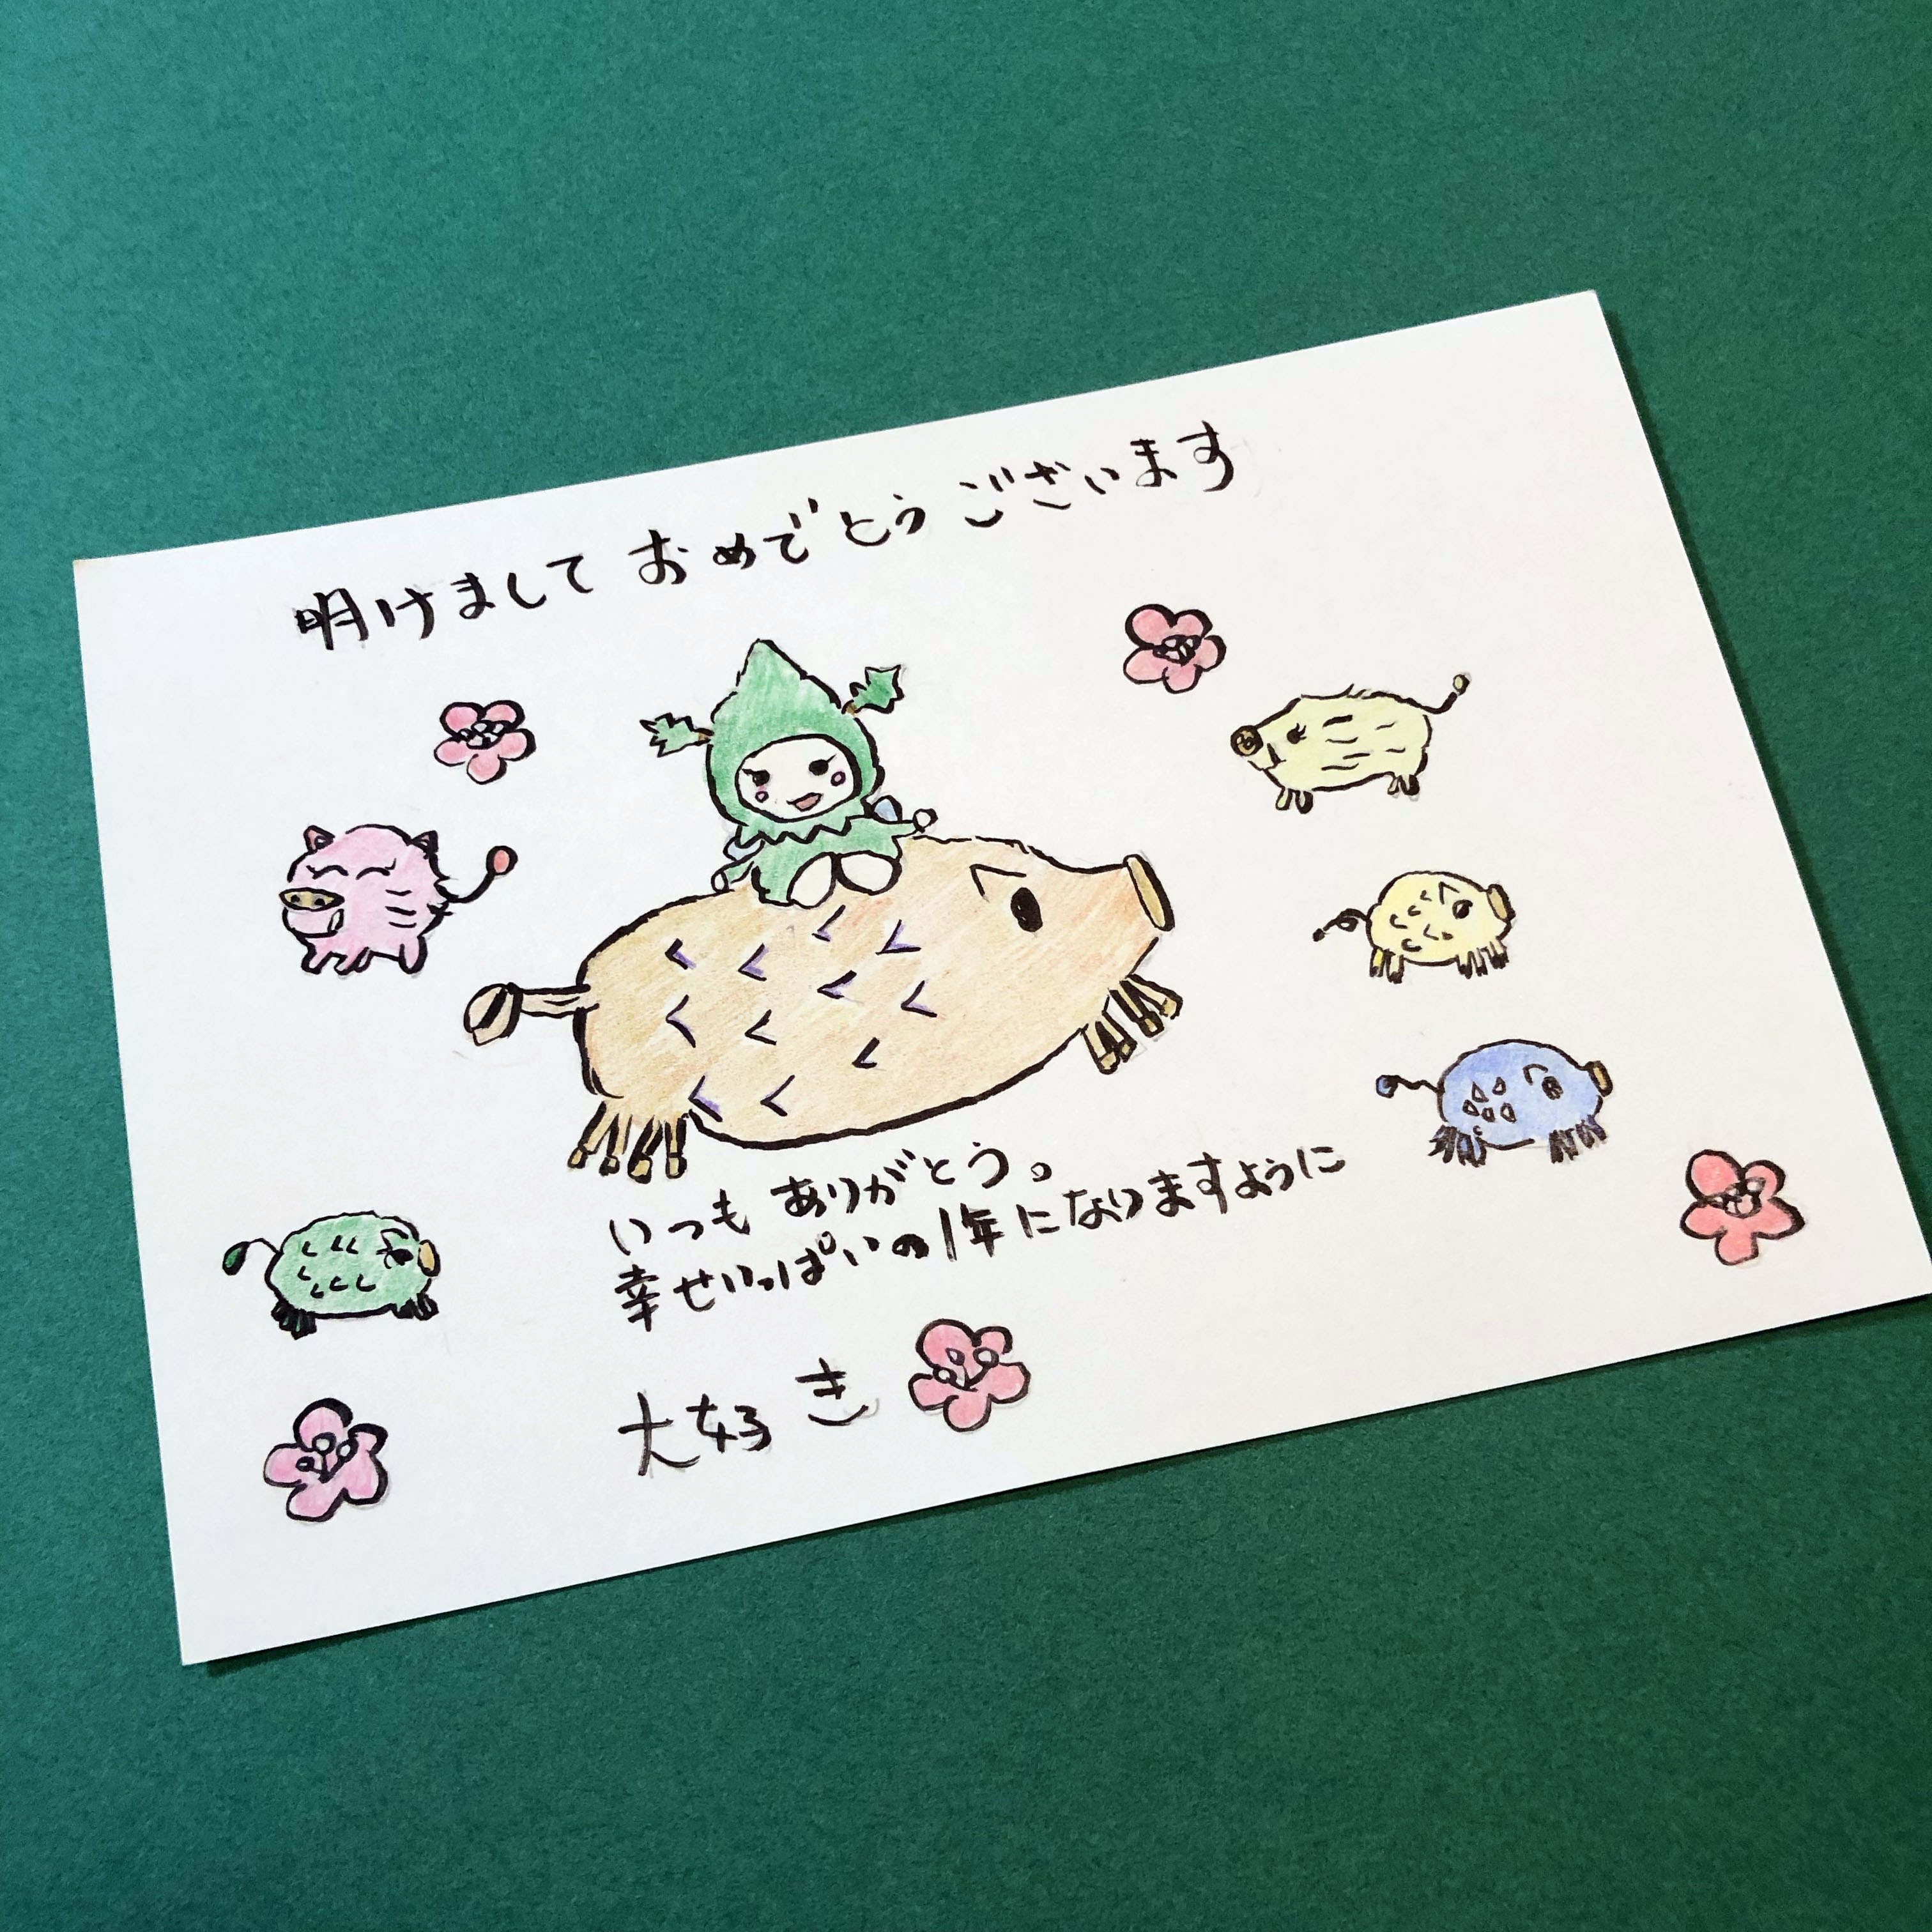 明けまして おめでとうございます
いつも ありがとう。
幸せいっぱいの1年になりますように
大好き